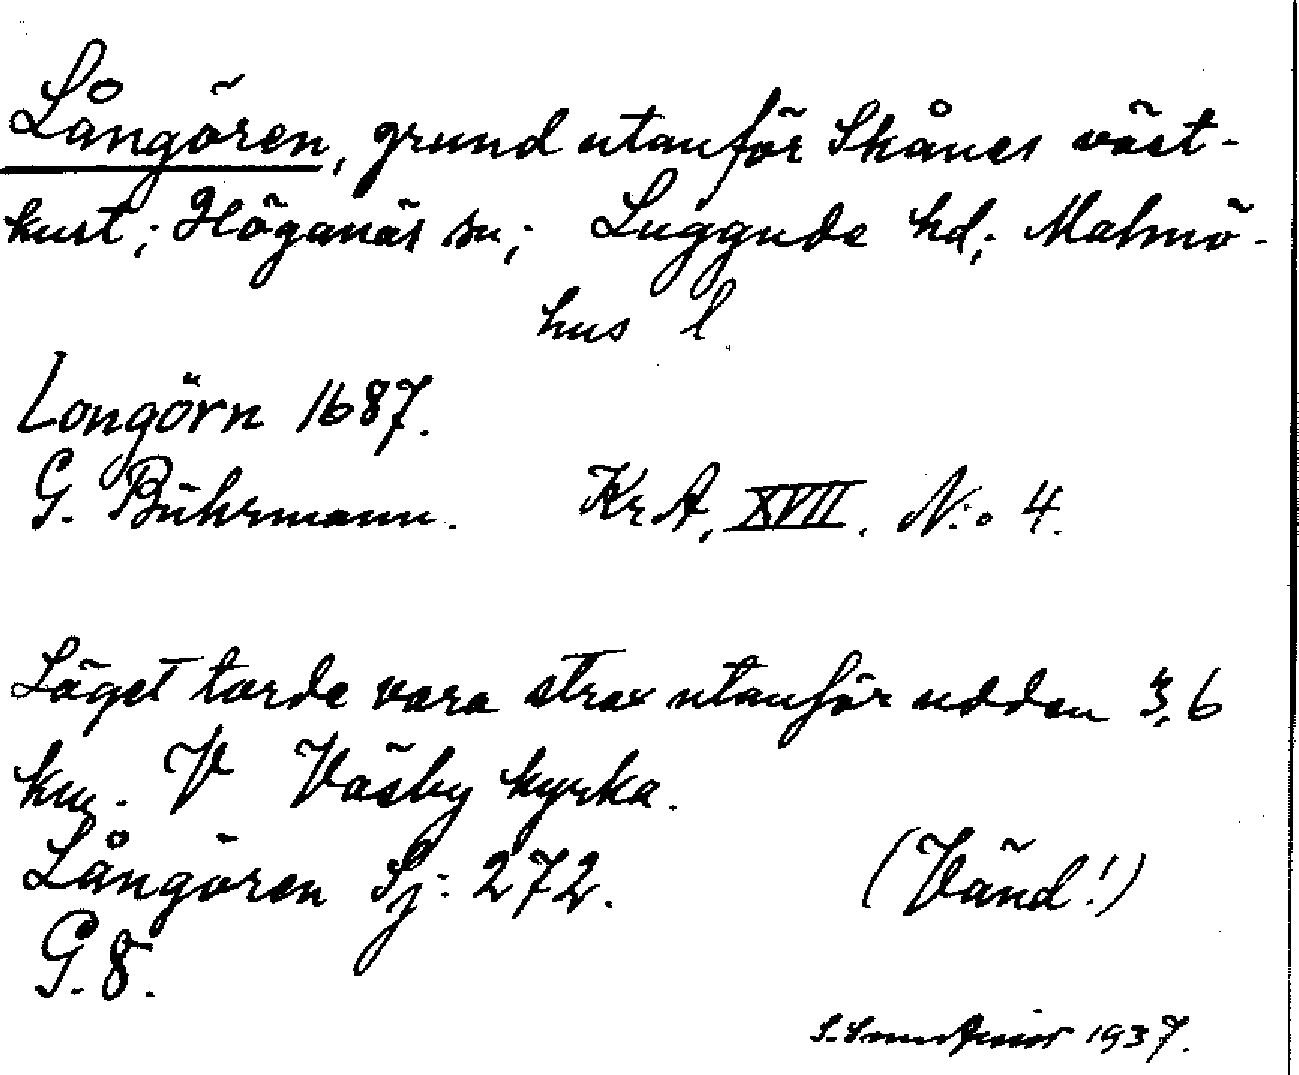 Långören, grund utanför Skånes väst-
kust; Höganäs sn; Luggude hd; Malmö-
hus l.
Longörn 1687.
G. Bührmann. KrA, XVII. N:o 4.
Läget torde vara strax utanför udden 3,6
km. V Väsby kyrka.
Långören Sj: 272. (Vänd!)
G. 8.
1937.